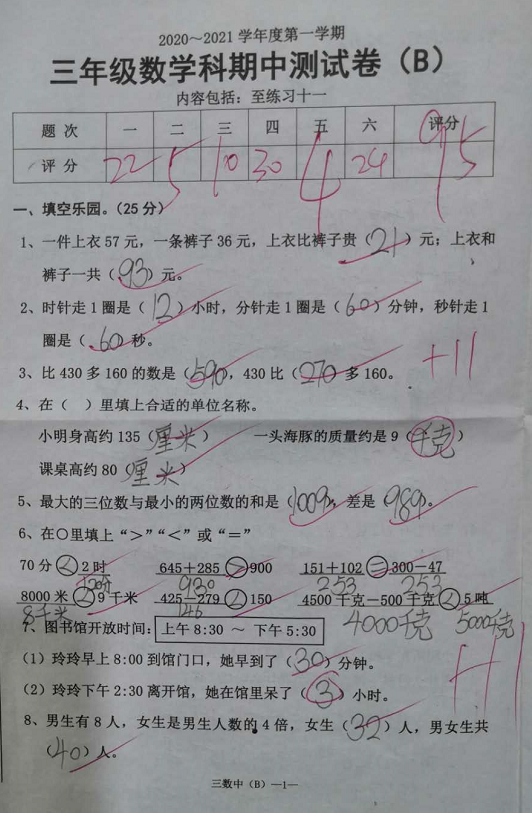 2020～2021 学年度第一学期
三年级数学科期中测试卷（B）
内容包括：至练习十一
题 次 一 二 三 四 五 六 评分
评 分 22 5 10 30 4 24 95
一、填空乐园。（25 分）
1、一件上衣 57 元，一条裤子 36 元，上衣比裤子贵（21）元；上衣和
裤子一共（93）元。
2、时针走 1 圈是（12）小时，分针走 1 圈是（60）分钟，秒针走 1
圈是（60）秒。
3、比 430 多 160 的数是（590），430 比（270）多 160。
+11
4、在（ ）里填上合适的单位名称。
小明身高约 135（厘米） 一头海豚的质量约是 9（千克）
课桌高约 80（厘米）
5、最大的三位数与最小的两位数的和是（1009），差是（989）。
6、在○里填上“>”“<”或“=”
70 分<2 时 645+285>900 151+102=300-47
120分 930 253 253
8000 米<9 千米 425-279<150 4500 千克-500 千克<5 吨
8千米 146 4000千克 5000千克
7、图书馆开放时间：上午 8:30 ～ 下午 5:30
（1）玲玲早上 8:00 到馆门口，她早到了（30）分钟。
+11
（2）玲玲下午 2:30 离开馆，她在馆里呆了（3）小时。
8、男生有 8 人，女生是男生人数的 4 倍，女生（32）人，男女生共
（40）人。
三数中（B）—1—